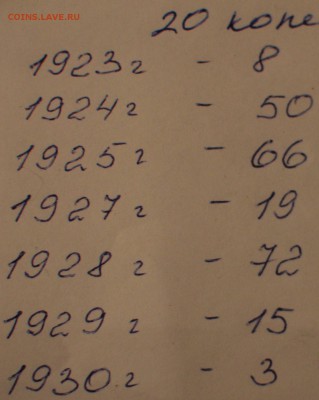 COINS.LAVE.RU
20 копе
1923 г - 8
1924 г - 50
1925 г - 66
1927 г - 19
1928 г - 72
1929 г - 15
1930 г - 3